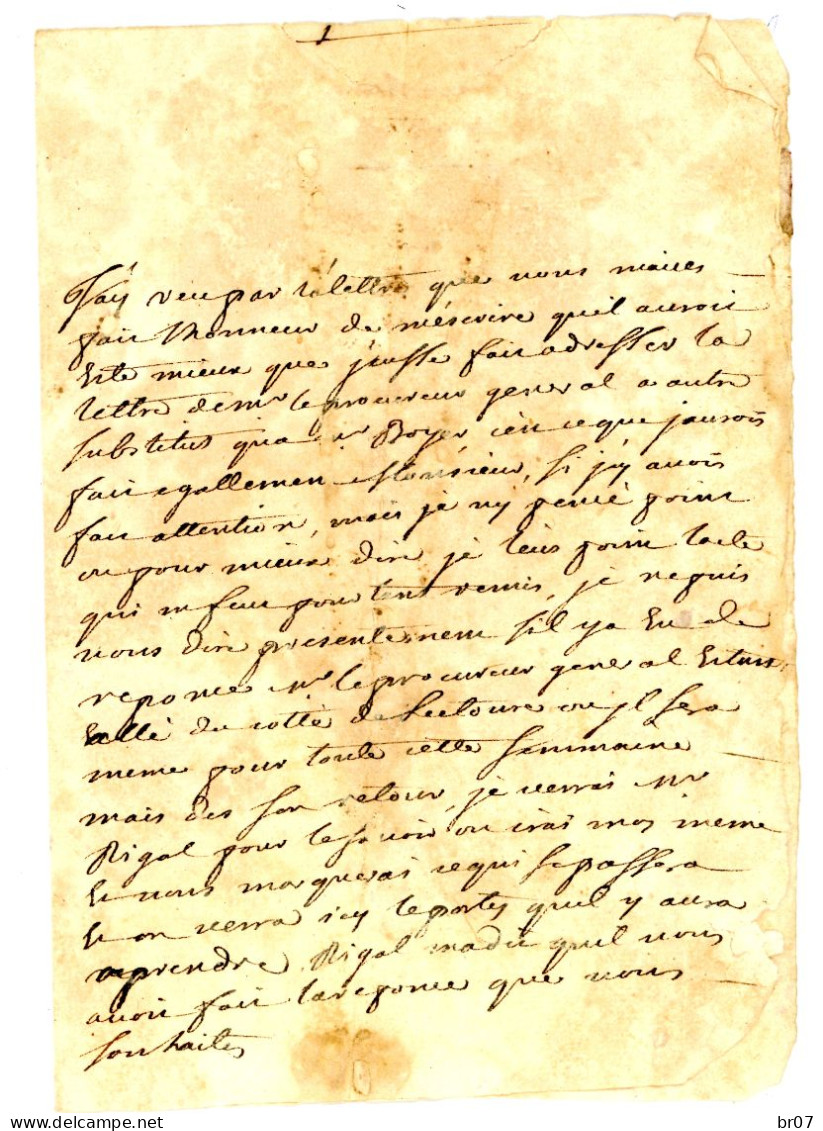 J'ay veu par la lettre que vous maves
fait l'honneur de m'escrire quil auroit
Esté mieux que j'eusse fait adresser la
lettre de mr le procureur general a autre
substitus qu'a mr Boyer cèn ce que j'aurois
fait egallement Monsieur, si j'y avois
fait attention, mais je n'y pencé point
ou pour mieux dire je leus point
qui m feu pourtant remis, je ne puis
vous dire presentement s'il y a Eu de
reponce mr le procureur general Estant
allé du cotté de Lectoure ou jl sera
meme pour toute cette semmaine
mais des son retour, je verrai mr
Rigal pour le savoir ou irai moy meme
Et vous marquerai ce qui se passera
Et on verra icy le partis quil y aura
aprendre Rigal ma dit quil vous
avoit fait la reponce que vous
souhaités
delcampe.net
br07